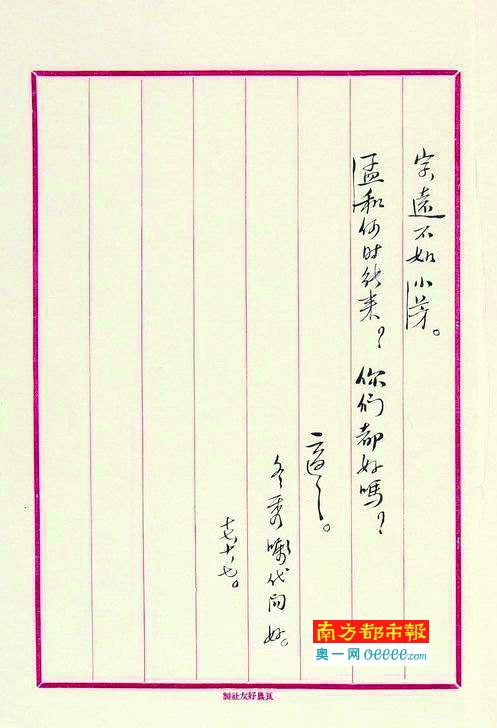 字遠不如小芳。
孟和何时能来？你們都好嗎？
適之。
冬秀囑代问好。
十七，十，七。
南方都市報
奥一网 oeeee.com